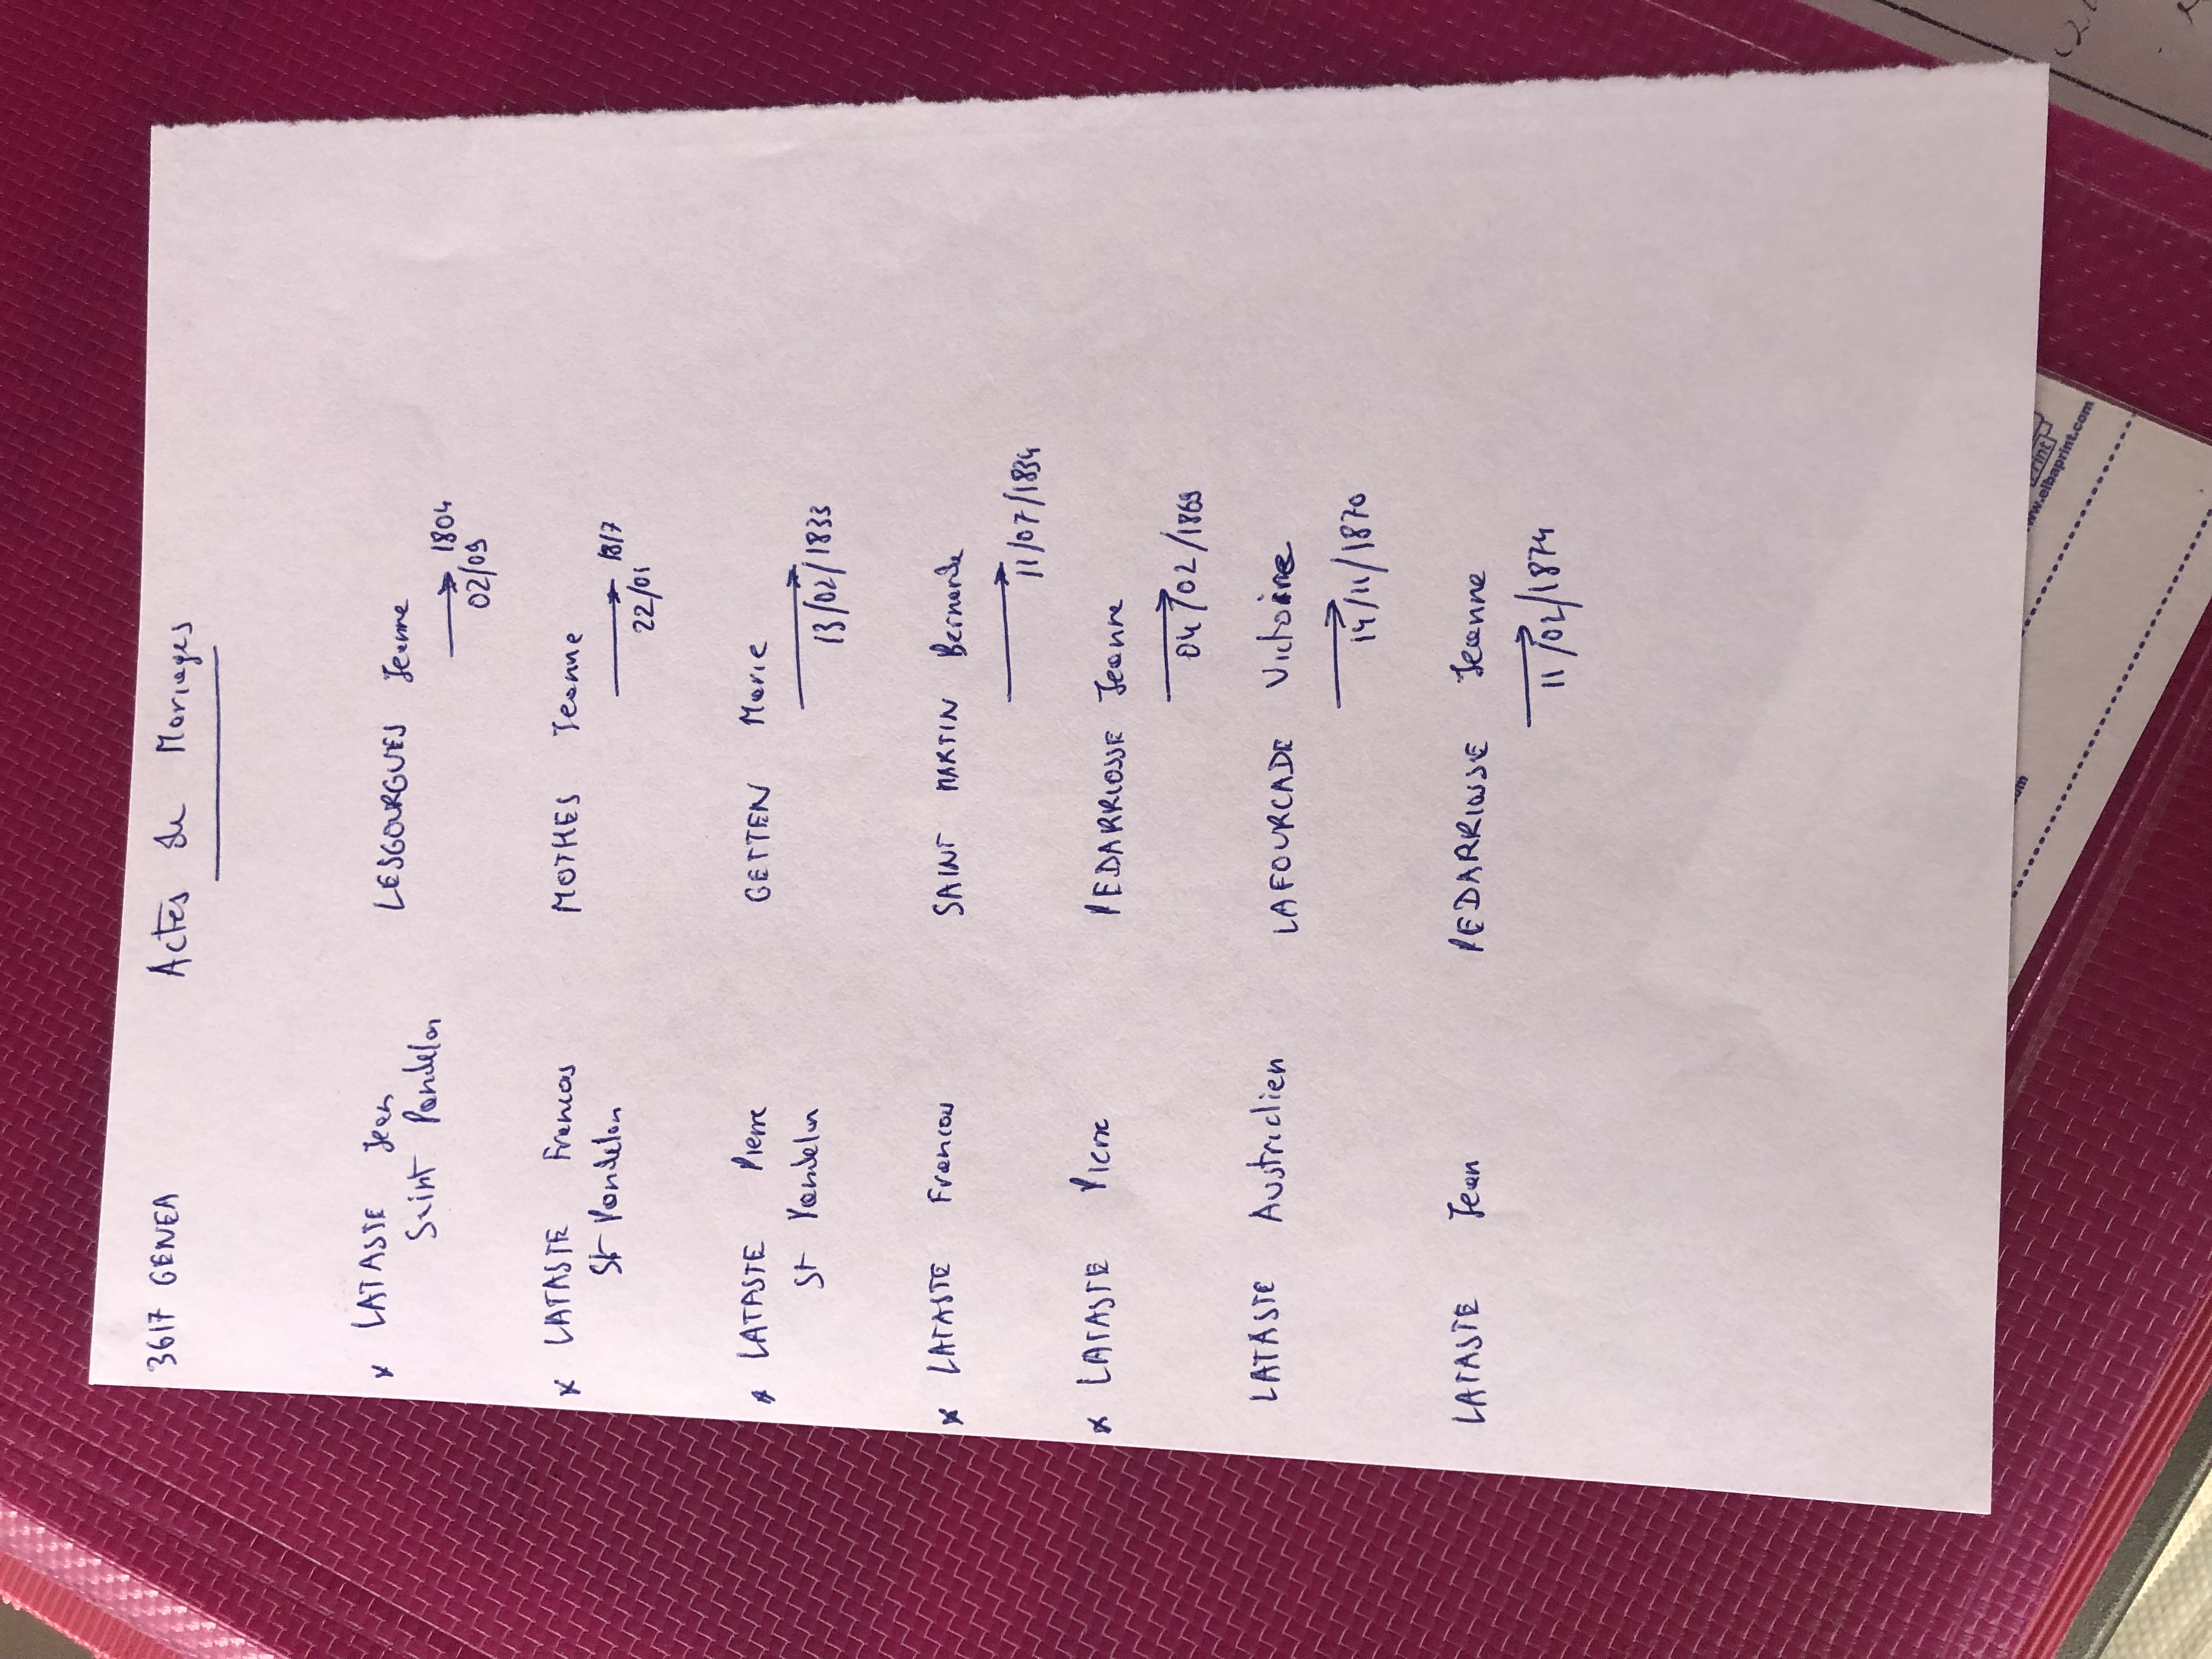 3617 GENEA
Actes de Mariages
x LATASTE Jean LESGOURGUES Jeanne
Saint Pandelon → 1804
02/09
x LATASTE Francois MOTHES Jeanne
St Pandelon → 1817
22/01
x LATASTE Pierre GETTEN Marie
St Pandelon → 13/02/1833
x LATASTE Francois SAINT MARTIN Bernarde
→ 11/07/1834
x LATASTE Pierre PEDARRIOSSE Jeanne
→ 04/02/1869
LATASTE Austriclien LAFOURCADE Victoire
→ 14/11/1870
LATASTE Jean PEDARRIOSSE Jeanne
→ 11/02/1874
www.elbaprint.com